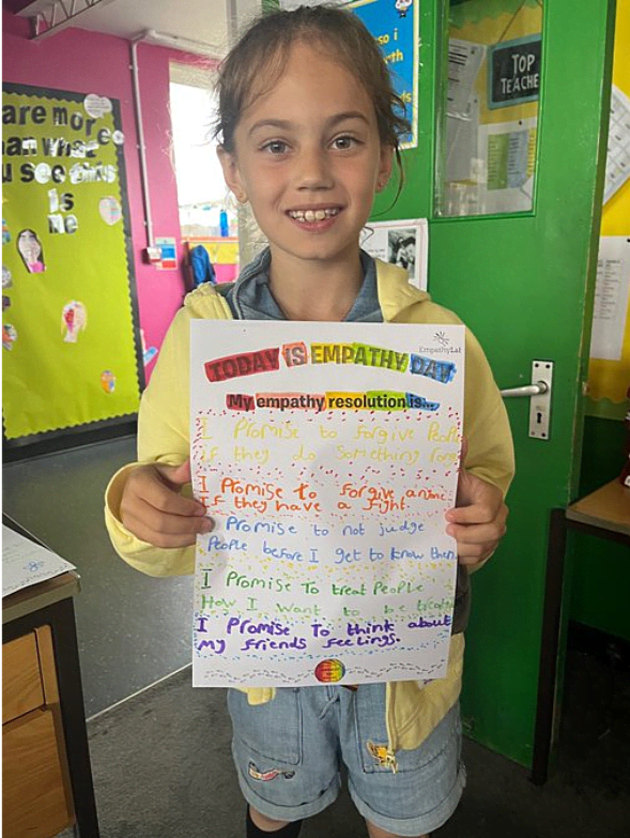 so i
TOP
TEACHE
are more
an what
u see this
is
me
EmpathyLab
TODAY IS EMPATHY DAY
My empathy resolution is...
I Promise to forgive Peopl
if they do something rong
I Promise to forgive anyone
If they have a fight.
Promise to not judge
People before I get to know them
I Promise To treat People
How I want to be treated
I Promise To think about
my friends feelings.